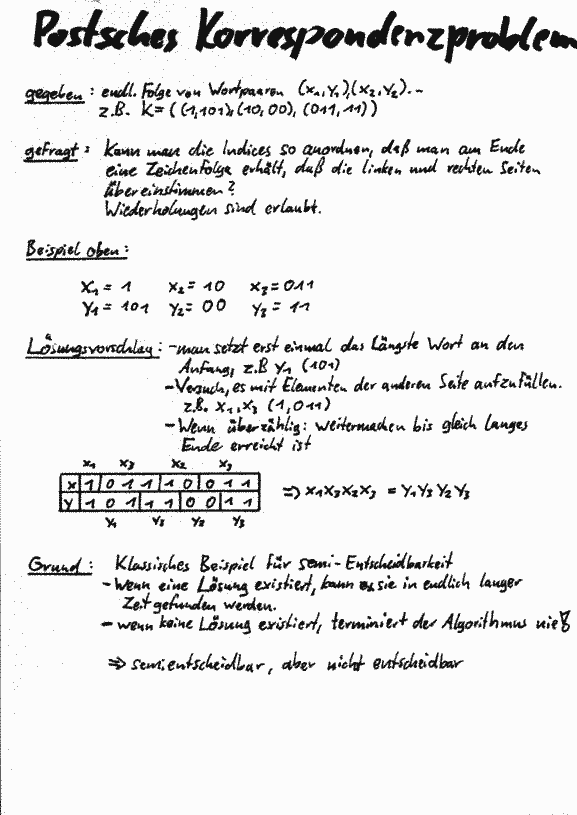 Postsches Korrespondenzproblem
gegeben: endl. Folge von Wortpaaren (x₁,y₁),(x₂,y₂)...
z.B. K = ((1,101),(10,00),(011,11))
gefragt: Kann man die Indices so anordnen, daß man am Ende
eine Zeichenfolge erhält, daß die linken und rechten Seiten
übereinstimmen?
Wiederholungen sind erlaubt.
Beispiel oben:
x₁ = 1 x₂ = 10 x₃ = 011
y₁ = 101 y₂ = 00 y₃ = 11
Lösungsvorschlag: - man setzt erst einmal das Längste Wort an den
Anfang, z.B y₁ (101)
- Versuch, es mit Elementen der anderen Seite aufzufüllen.
z.B. x₁,x₃ (1,011)
- Wenn überzählig: weitermachen bis gleich langes
Ende erreicht ist
x₁ x₃ x₂ x₃
x 1 0 1 1 1 0 0 1 1 => x₁x₃x₂x₃ = y₁y₃y₂y₃
y 1 0 1 1 1 0 0 1 1
y₁ y₃ y₂ y₃
Grund: Klassisches Beispiel für semi-Entscheidbarkeit
- wenn eine Lösung existiert, kann sie in endlich langer
Zeit gefunden werden.
- wenn keine Lösung existiert, terminiert der Algorithmus nie!
=> semientscheidbar, aber nicht entscheidbar